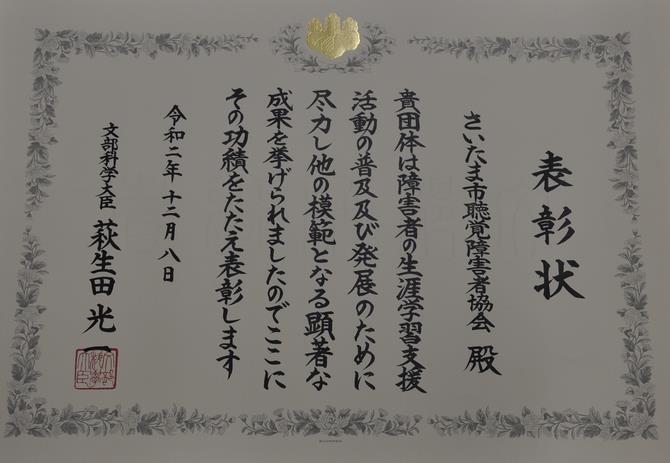 表彰状
さいたま市聴覚障害者協会 殿
貴団体は障害者の生涯学習支援
活動の普及及び発展のために
尽力し他の模範となる顕著な
成果を挙げられましたのでここに
その功績をたたえ表彰します
令和二年 十二月 八日
文部科学大臣 萩生田 光一